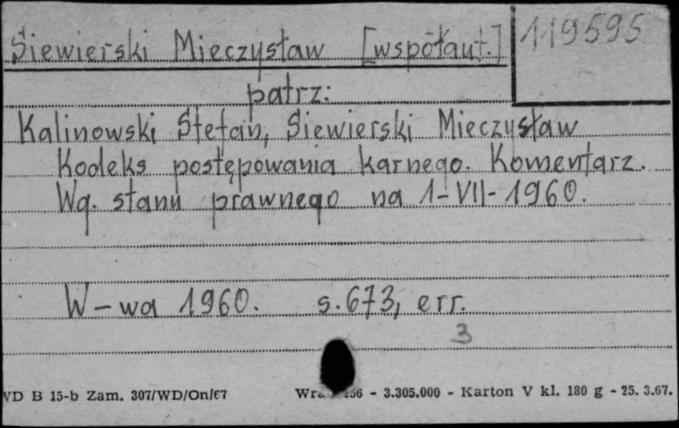 Siewierski Mieczysław [współaut.] 119595
patrz:
Kalinowski Stefan, Siewierski Mieczysław
Kodeks postępowania karnego. Komentarz.
Wg. stanu prawnego na 1-VII-1960.
W-wa 1960. s. 673, err.
3
WD B 15-b Zam. 307/WD/On/67 - 3.305.000 - Karton V kl. 180 g - 25. 3.67.